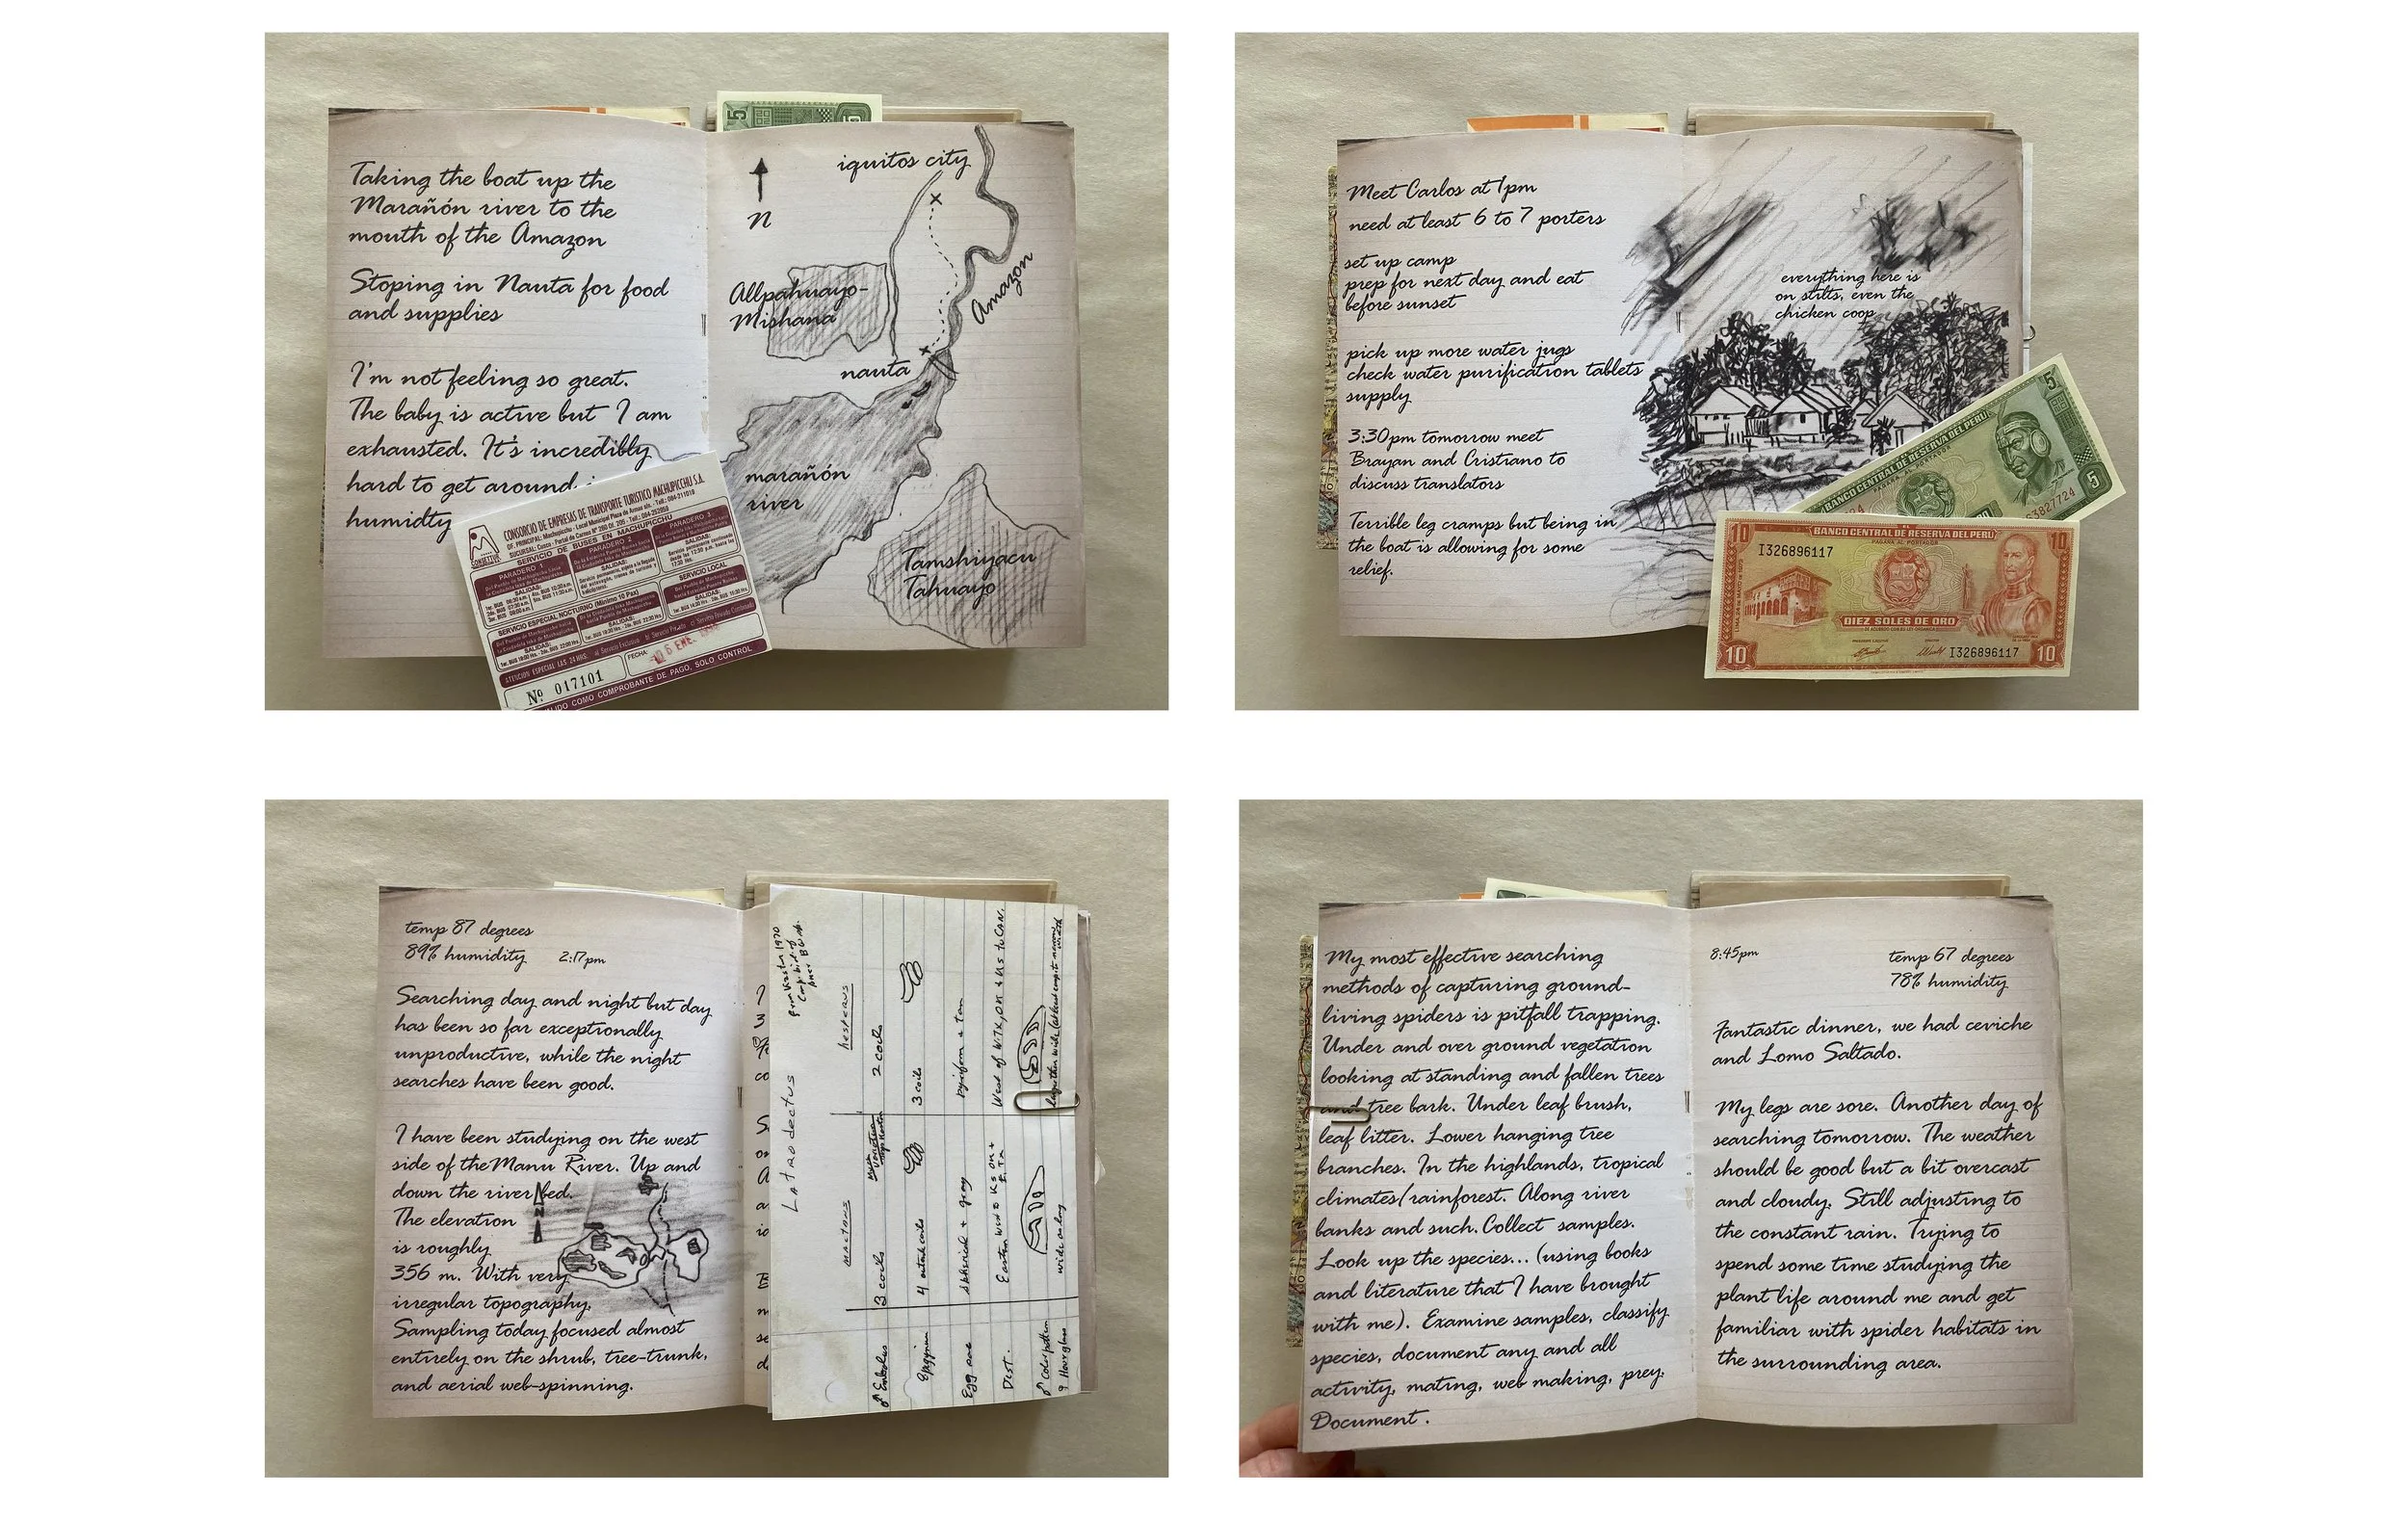 Taking the boat up the
Marañón river to the
mouth of the Amazon
Stoping in Nauta for food
and supplies
I'm not feeling so great.
The baby is active but I am
exhausted. It's incredibly
hard to get around
humidty
CONSORCIO DE EMPRESAS DE TRANSPORTE TURISTICO MACHUPICCHU S.A.
SERVICIO DE BUSES EN MACHUPICCHU
PARADERO 1
PARADERO 2
PARADERO 3
SALIDAS:
SALIDAS:
SALIDAS:
SERVICIO ESPECIAL NOCTURNO (Minimo 10 Pax)
SERVICIO LOCAL
SALIDAS:
SALIDAS:
ATENCION ESPECIAL LAS 24 HRS.
FECHA
6 ENE.
Nº 017101
COMO COMPROBANTE DE PAGO, SOLO CONTROL
5
iquitos city
N
Amazon
Allpahuayo-
Mishana
nauta
marañón
river
Tamshiyacu
Tahuayo
Meet Carlos at 1pm
need at least 6 to 7 porters
set up camp
prep for next day and eat
before sunset
pick up more water jugs
check water purification tablets
supply
3:30pm tomorrow meet
Brayan and Cristiano to
discuss translators
Terrible leg cramps but being in
the boat is allowing for some
relief.
everything here is
on stilts, even the
chicken coop
BANCO CENTRAL DE RESERVA DEL PERU
5
5
10
BANCO CENTRAL DE RESERVA DEL PERU
10
PAGARA AL PORTADOR
I326896117
DIEZ SOLES DE ORO
I326896117
10
10
temp 87 degrees
89% humidity 2:17pm
Searching day and night but day
has been so far exceptionally
unproductive, while the night
searches have been good.
I have been studying on the west
side of the Manu River. Up and
down the river bed.
The elevation
is roughly
356 m. With very
irregular topography.
Sampling today focused almost
entirely on the shrub, tree-trunk,
and aerial web-spinning.
N
Latrodectus
mactans
hesperus
♂ Embolus
3 coils
2 coils
Epigynum
4
3 coils
Egg sac
spherical + gray
pyriform + tan
Dist.
♂ Color pattern
♀ Hourglass
wide as long
My most effective searching
methods of capturing ground-
living spiders is pitfall trapping.
Under and over ground vegetation
looking at standing and fallen trees
and tree bark. Under leaf brush,
leaf litter. Lower hanging tree
branches. In the highlands, tropical
climates/rainforest. Along river
banks and such. Collect samples.
Look up the species... (using books
and literature that I have brought
with me). Examine samples, classify
species, document any and all
activity, mating, web making, prey.
Document.
8:45pm temp 67 degrees
78% humidity
Fantastic dinner, we had ceviche
and Lomo Saltado.
My legs are sore. Another day of
searching tomorrow. The weather
should be good but a bit overcast
and cloudy. Still adjusting to
the constant rain. Trying to
spend some time studying the
plant life around me and get
familiar with spider habitats in
the surrounding area.